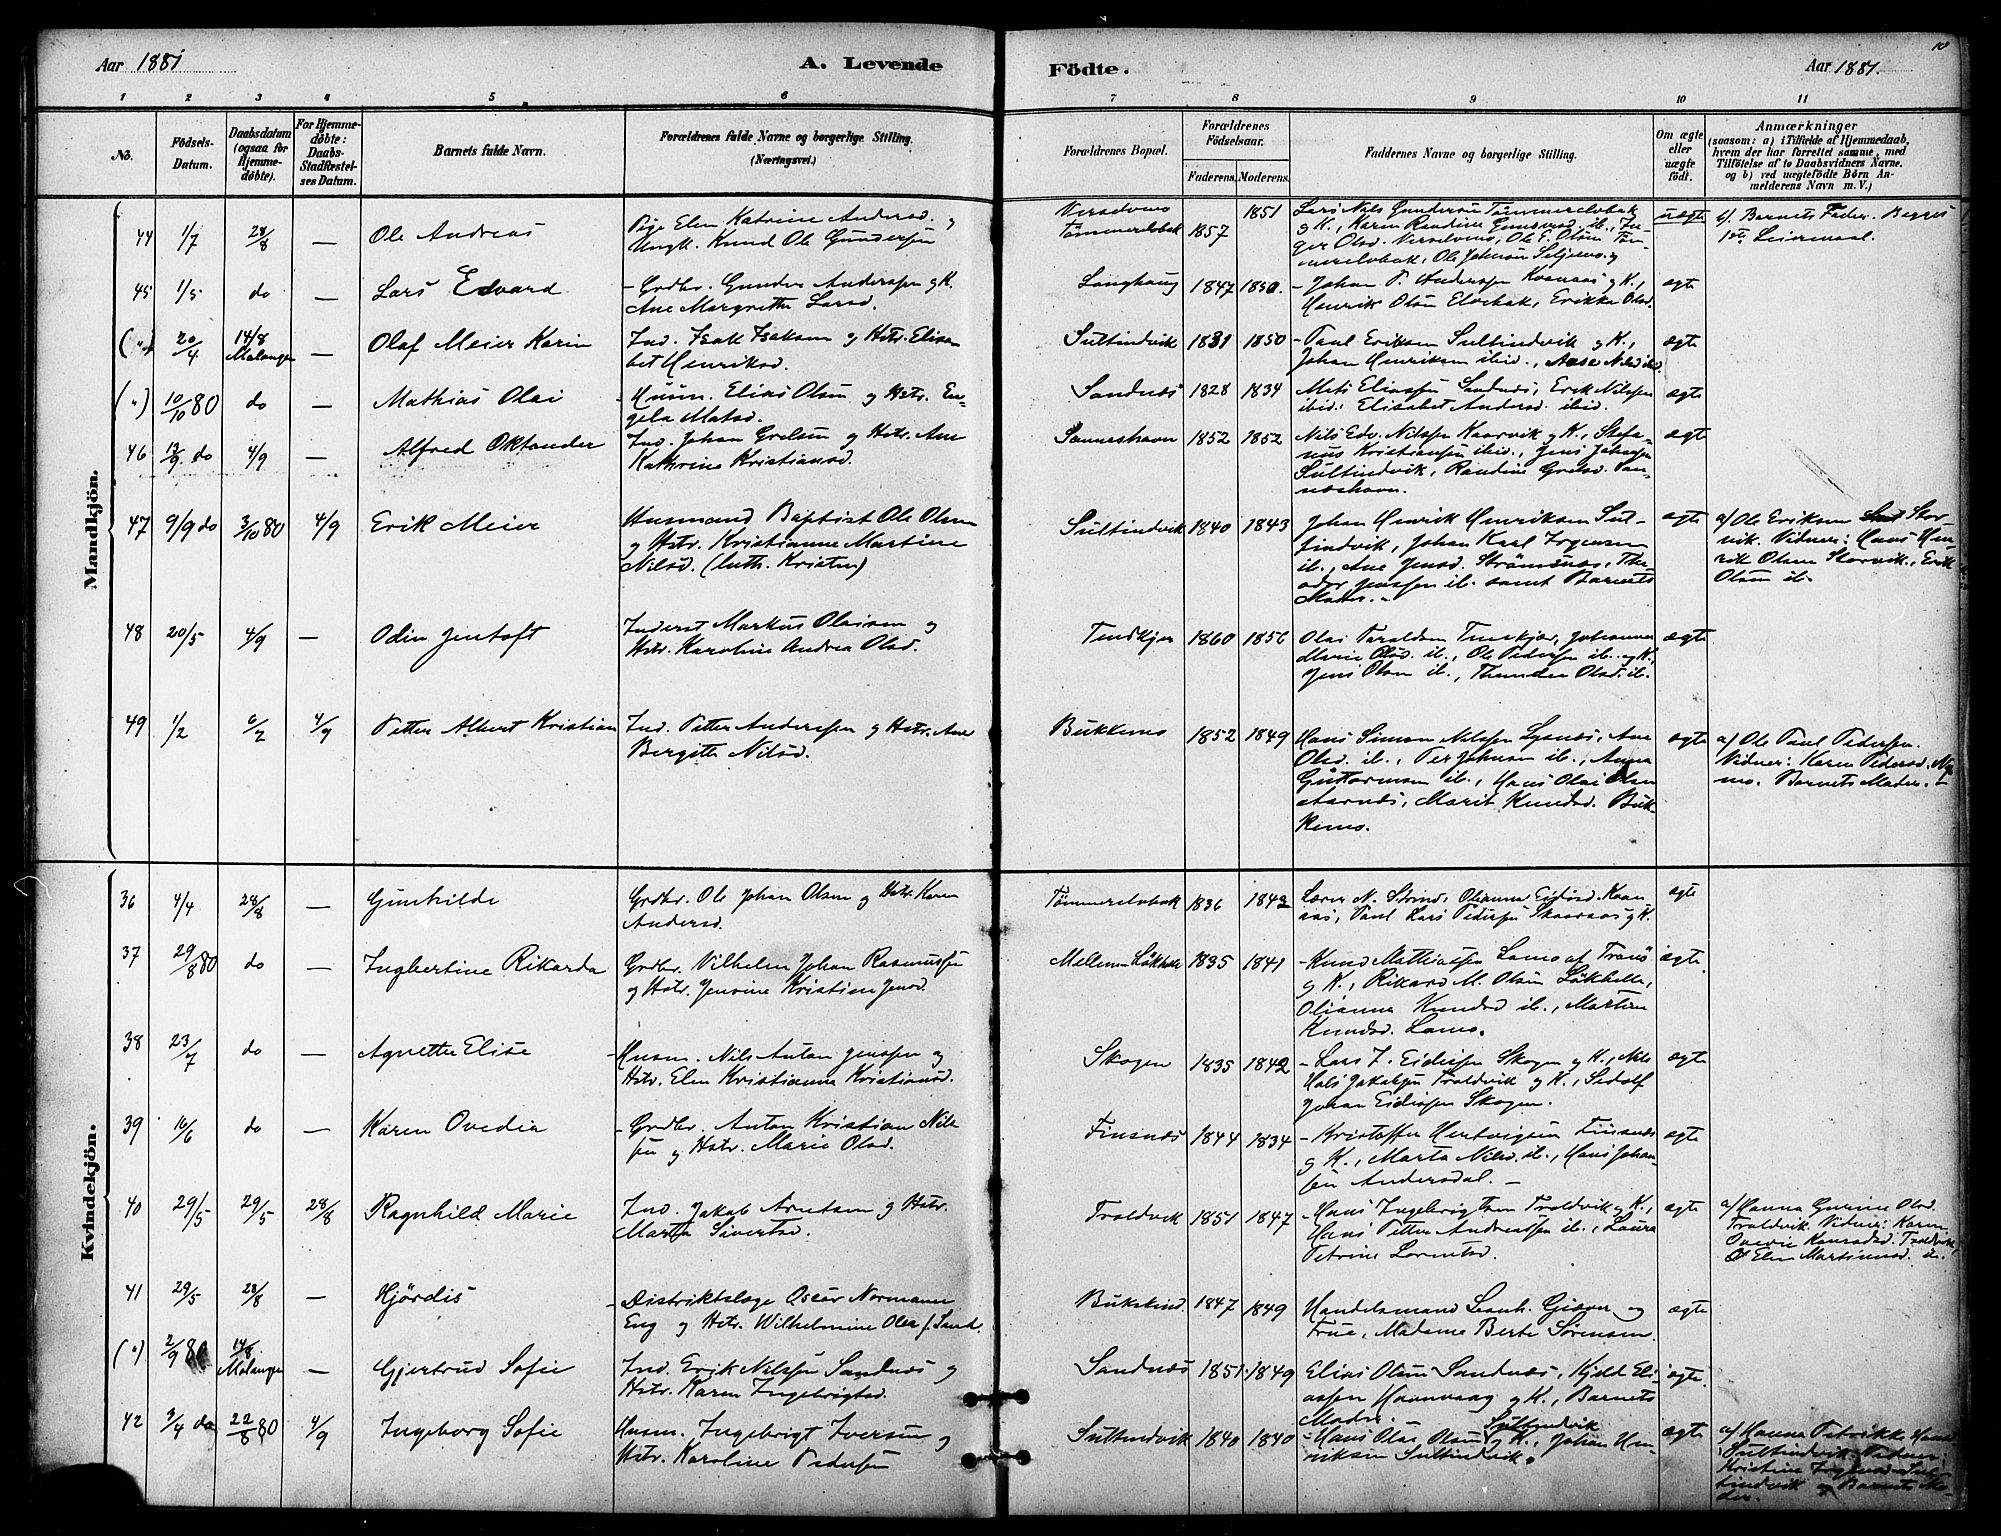 Aar 1881
A. Levende
Födte.
Aar 1881.
10
1 2 3 4 5 6 7 8 9 10 11
No.
Födsels-
Datum.
Daabsdatum
(ogsaa for
Hjemme-
döbte).
For Hjemme-
döbte:
Daabs-
Stadfæstel-
ses Datum.
Barnets fulde Navn.
Forældrenes fulde Navne og borgerlige Stilling.
(Næringsvei.)
Forældrenes Bopæl.
Forældrenes
Födselsaar.
Faderens. Moderens.
Faddernes Navne og borgerlige Stilling.
Om ægte
eller
uægte
födt.
Anmærkninger
(saasom: a) i Tilfælde af Hjemmedaab,
hvem der har forrettet samme, med
Tilföielse af to Daabsvidners Navne.
og b) ved uægtefödte Börn An-
melderens Navn m. V.)
Mandkjön.
44 1/7 28/8 — Ole Andreas
Pige Elen Katrine Andersd. og
Ungk. Knud Ole Gundersen
Tömmerelvbak 1857 1851
Lars Nils Gundersen Tömmerelvbak
uægte
b/. Barnets Fader. Begges
1ste Leiermaal.
45 1/5 do — Lars Edvard
Grdbr. Gunder Anderssen og K.
Ane Margrethe Larsd.
Langhaug 1847 1850.
Johan P. Anderssen Kvænaas og K.,
Henrik Olsen Elvebak, Erikka Olsd.
ægte
(") 20/4 14/8 Malangen — Olaf Meier Karin
Ind. Isak Isaksen og Hstr. Elisa-
bet Henriksd.
Sultindvik 1831 1850
Paul Eriksen Sultindvik og K.,
Johan Henriksen ibid., Aase Nilsd. ibid.
ægte
(") 10/10 80 do — Mathias Olai
Husm. Elias Olsen og Hstr. En-
gela Matsd.
Sandnæs 1828 1834
Mats Eliassen Sandnæs, Erik Nilssen
ibid. Elisabet Andersd. ibid.
ægte
46 12/9 do 4/9 — Alfred Oktander
Ind. Johan Grelsen og Hstr. Ane
Kathrine Kristiansd.
Sanneshavn 1852 1852
Nils Edv. Nilssen Kaarvik og K., Stefa-
nus Kristiansen ibid., Jens Johansen
Sultindvik, Randine Grelsd. San-
næshavn.
ægte
47 9/9 do 3/10 80 4/9 Erik Meier
Husmand Baptist Ole Olsen
og Hstr. Kristianne Martine
Nilsd. (luth. Kristen)
Sultindvik 1840 1843
Johan Henrik Henriksen Sul-
tindvik, Johan Karl Jörgensen
ib., Ane Jensd. Strömsnæs, The-
odor Jenssen ib. samt Barnets
Moder.
ægte
a/ Ole Eriksen Stor-
vik. Vidner: Hans Hen-
rik Olsen Storvik, Erik
Olsen ib.
48 20/5 4/9 — Odin Jentoft
Inderst Markus Olaisen og
Hstr. Karoline Andrea Olsd.
Tendskjer 1860 1856
Olai Taraldsen Tenskjær, Johanna
Marie Olsd. ib., Ole Pedersen ib. og K.,
Jens Olsen ib., Olsd. ib.
ægte
49 1/2 6/2 4/9 Petter Albert Kristian
Ind. Petter Anderssen og Hstr. Ane
Bergitte Nilsd.
Bukkemo 1852 1849
Hans Simon Nilssen Lysnes, Ane
Olsd. ib., Per Johnsen ib., Anna
ib., Hans Olai Olsen
Aarnæs, Marit Knudsd. Buk-
kemo.
ægte
a/ Ole Paul Pedersen.
Vidner: Karen Pedersd. Ny-
mo. Barnets Moder.
Kvindekjön.
36 4/4 28/8 — Gunhilde
Grdbr. Ole Johan Olsen og Hstr. Karen
Andersd.
Tömmerelvbak 1836 1842
Lærer N. Strind, Olianna
Paul Lars Pedersen Skaaraas og K.
ægte
37 29/8 80 do — Ingbertine Rikarda
Grdbr. Vilhelm Johan Rasmussen
og Hstr. Jensine Kristine Jensd.
Mellem-Lökhelle 1835 1841
Knud Mathiassen Lamo af Tranö
og K., Rikard M. Olsen Lökhelle,
Olianna Knudsd ib., Martine
Knudsd. Lamo.
ægte
38 23/7 do — Agnethe Elise
Husm. Nils Anton Jenssen og
Hstr. Elen Kristianna Kristiansd.
Skogen 1835 1842
Lars J. Eidissen Skogen og K., Nils
Hals Jakobsen Troldvik og K., Sedolf
Johan Eidissen Skogen.
ægte
39 16/6 do — Karen Ovedia
Grdbr. Anton Kristian Nils-
sen og Hstr. Marie Olsd.
Finsnæs 1844 1834
Kristoffer Hertvigsen Finsnæs
og K., Marta Nilsd. ib., Hans Johan-
sen Andersdal.
ægte
40 29/5 29/5 28/8 Ragnhild Marie
Ind. Jakob Arntsen og Hstr.
Martha Sivertsd.
Troldvik 1851 1847
Hans Ingebrigtsen Troldvik og K.,
Hans Petter Andreassen ib., Laura
Petrine Lorntsd.
ægte
a/ Hanna Gurine Olsd.
Troldvik. Vidner: Karen
Ovedie Konradsd. Troldvik,
Elen Martinusd. ib.
41 29/5 28/8 Hjördis
Distriktslæge Oscar Normann
Eng og Hstr. Wilhelmine Olea f. Sand.
Bukskind. 1847 1849
Handelsmand Leonh. Giæver og
Frue, Madame Berte Sörensen.
ægte
(") 2/9 80 14/8 Malangen — Gjertrud Sofie
Ind. Erik Nilssen Sandnæs og
Hstr. Karen Ingebrigtsd.
Sandnæs 1851 1849
Elias Olsen Sandnæs, Kjeld Eli-
assen og K., Barnets
Moder.
ægte.
42 3/4 do 22/8 80 4/9 Ingeborg Sofie
Husm. Ingebrigt Iversen og
Hstr. Karoline Pedersen
Sultindvik 1840 1840
Sultindvik
Hans Olai Olsen og K., Johan Hen-
riksen Sultindvik.
ægte
a/ Hanna Petrikke
Sultindvik. Vidner:
Kristine Sul-
tindvik og Barnets Mo-
der.